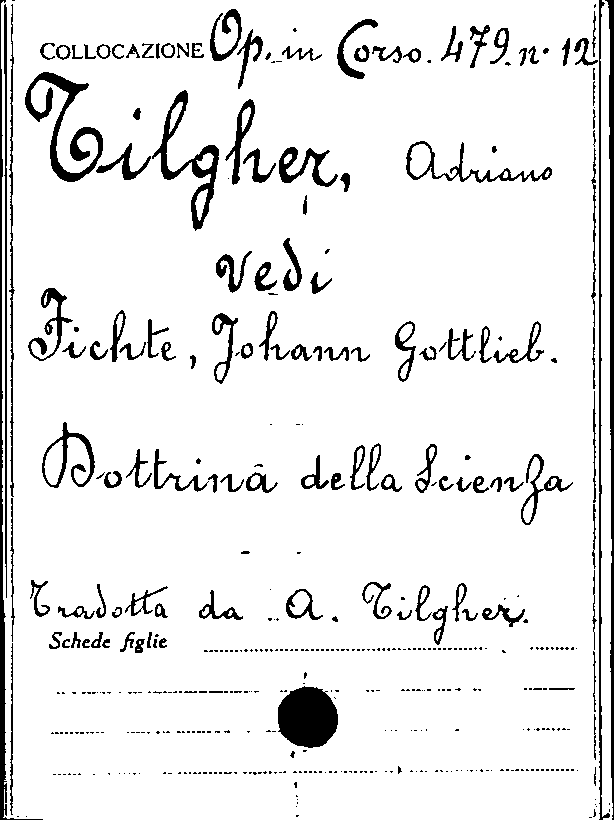 COLLOCAZIONE Op. in Corso. 479. n. 12
Tilgher, Adriano
vedi
Fichte, Johann Gottlieb.
Dottrina della Scienza
Tradotta da A. Tilgher.
Schede figlie